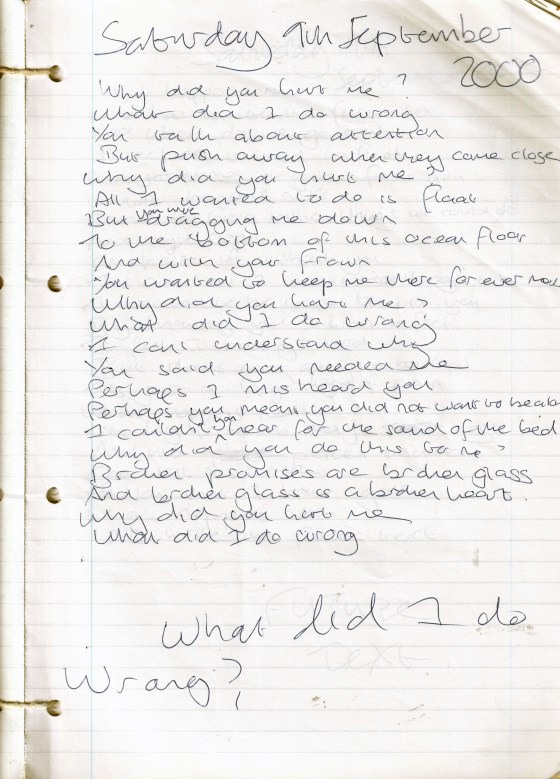 Saturday 9th September
2000
Why did you hurt me?
What did I do wrong
You talk about attention
But push away when they come close
Why did you hurt me?
All I wanted to do is float
But you were dragging me down
To the bottom of this ocean floor
And with your frown
You wanted to keep me there for ever more
Why did you hurt me?
What did I do wrong
I can't understand why
You said you needed me
Perhaps I misheard you
Perhaps you meant you did not want to
I couldn't hear you for the sand of the bed
Why did you do this to me?
Broken promises are broken glass
And broken glass is a broken heart.
Why did you hurt me
What did I do wrong
What did I do
Wrong?